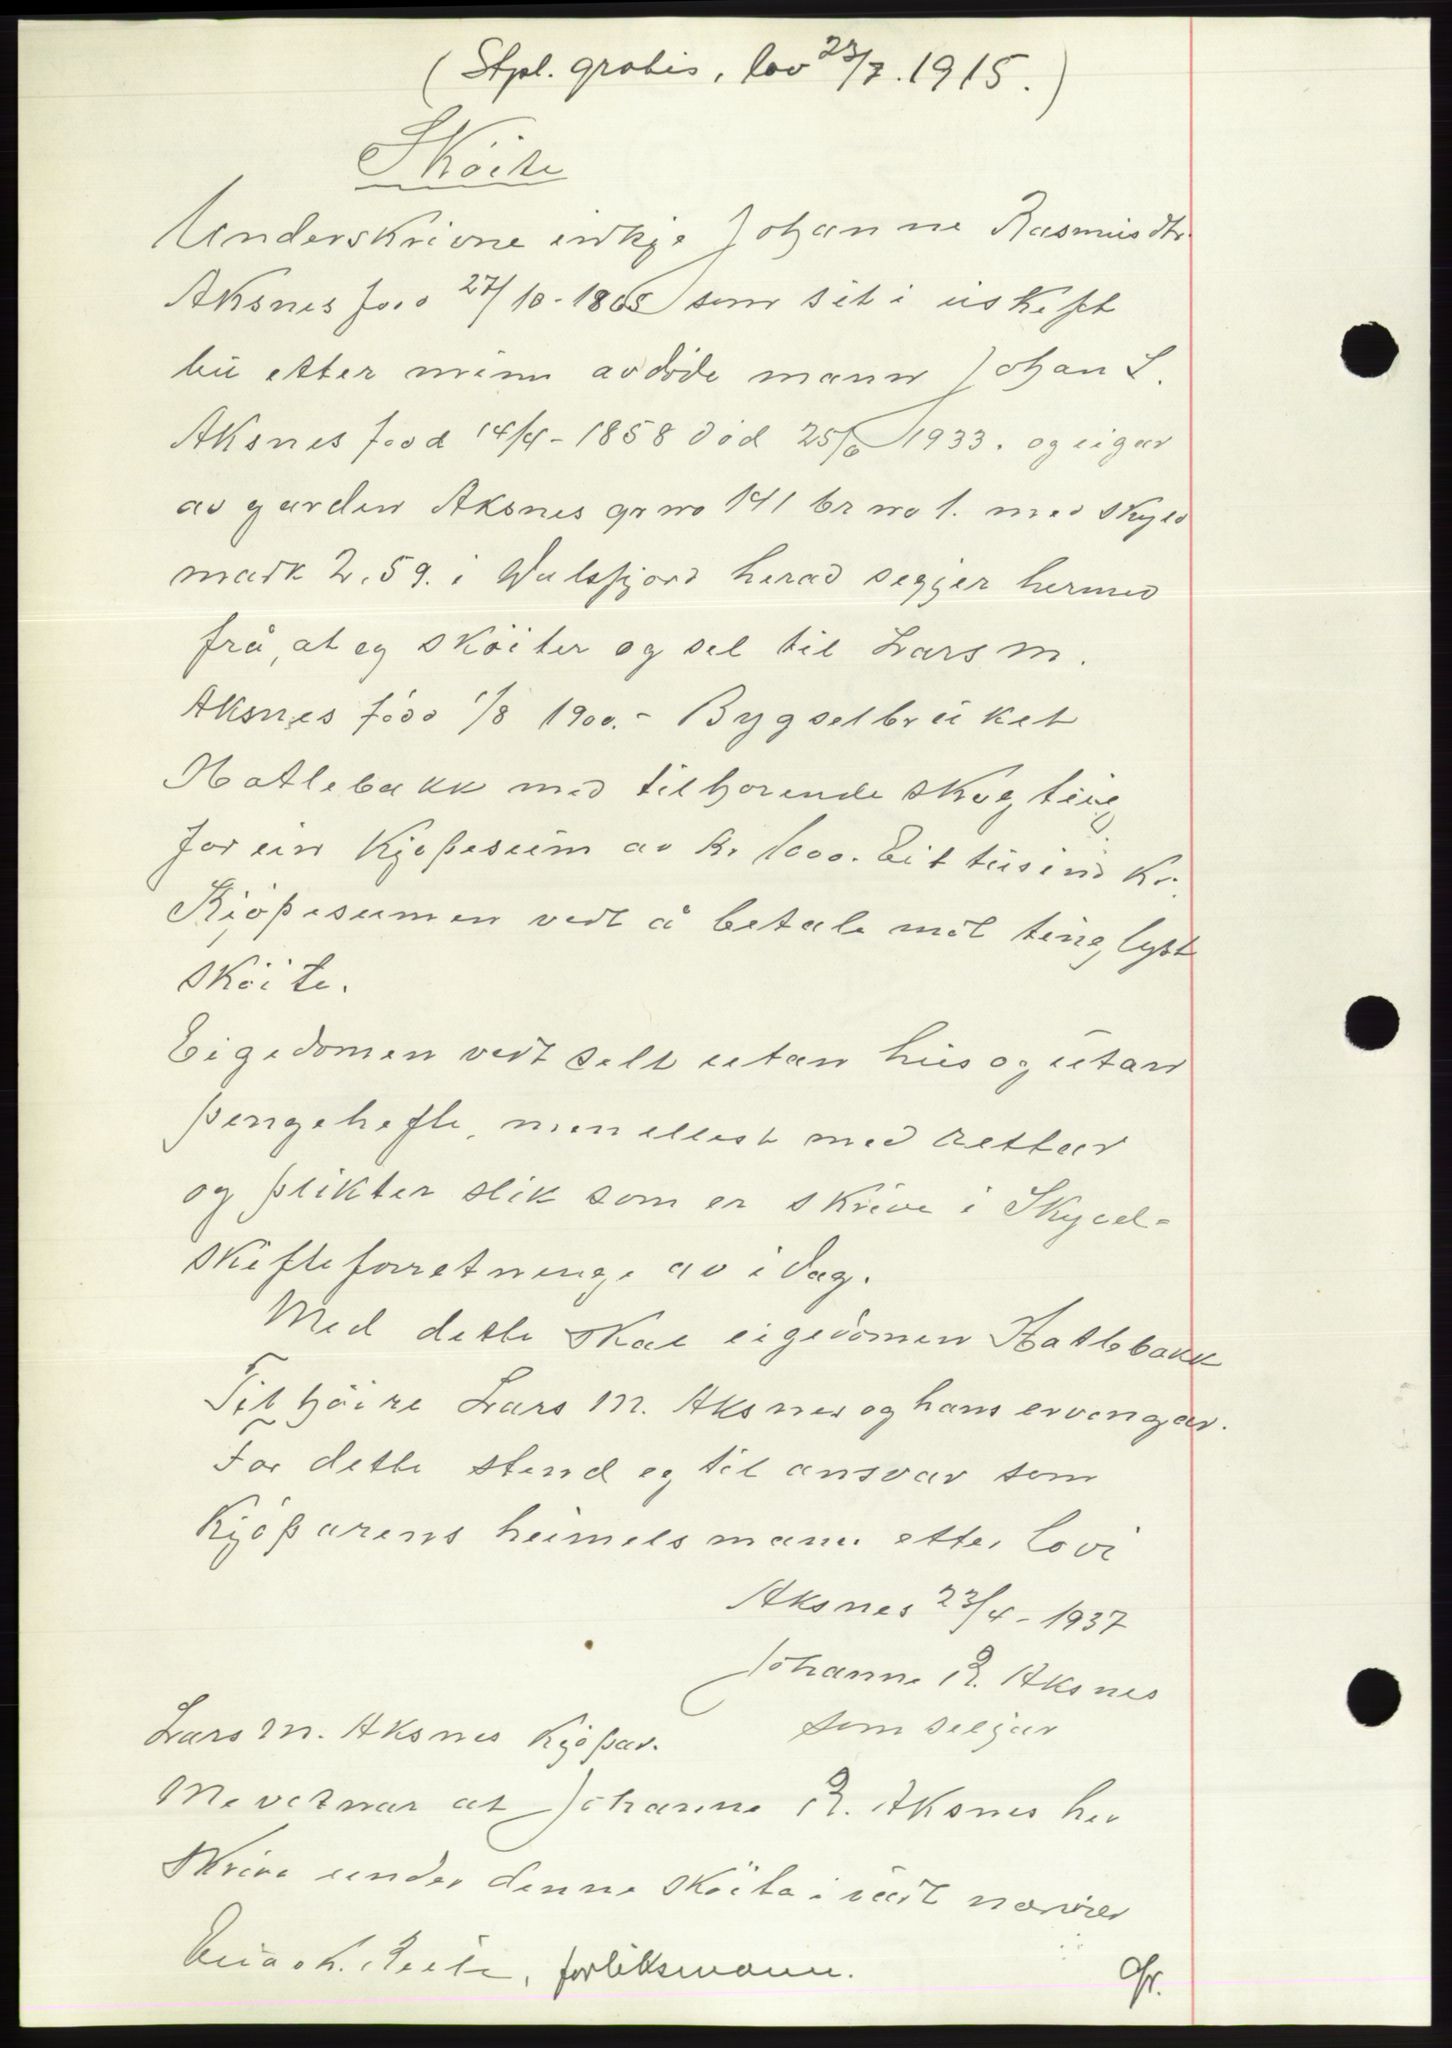 (Stpl. gratis, lov 23/7. 1915.)
Sköite
Underskrivne enkje Johanne Rasmusdtr.
Aksnes född 27/10-1865 som sit i uskift
bu etter minn avdöde mann Johan L.
Aksnes föod 14/4-1858 död 25/6 1933. og eigar
av garden Aksnes gr no 141 br no 1. med skyld
mark 2.59. i Dalsfjord herad segjer hermed
frå, at eg sköiter og sel til Lars M.
Aksnes född 1/8 1900.- Bygselbruket
Hatlebakk med tilhorende skogteig
for ein kjöpesum av kr 1000. Eit tusind kr.
Kjöpesumen vert å betale mot tinglyst
sköite.
Eigedomen vert selt utan hus og utan
pengehefte, men ellest med rettar
og plikter slik som er skrive i Skyld-
skifteforretninge av i dag.
Med dette skal eigedomen Hatlebakk
Tilhöire Lars M. Aksnes og hans ervingar.
For dette stend eg til ansvar som
Kjöparens heimelsmann etter lovi
Aksnes 23/4-1937
Johanne R. Aksnes
som seljar
Lars M. Aksnes Kjöpar.
Me vitnar at Johanne R. Aksnes hev
skrive under denne sköita i vårt nærvær
K. forliksmann.